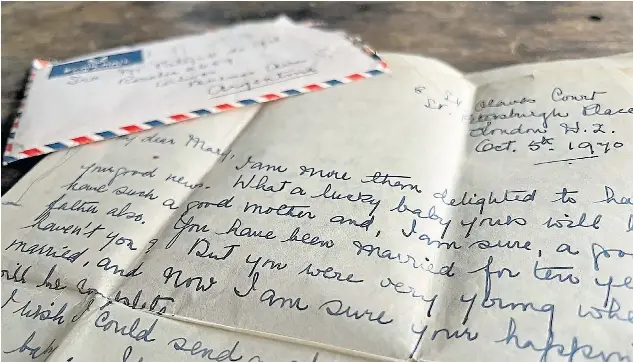 Argentina
8, St. Olaves Court
St. Petersburgh Place
London W.2.
Oct. 5th 1970
My dear Mary,
I am more than delighted to ha
your good news. What a lucky baby yours will
have such a good mother and, I am sure, a goo
father also. You have been married for ten ye
haven't you? But you were very young whe
married, and now I am sure your happin
will be complete.
I wish I could send a
baby